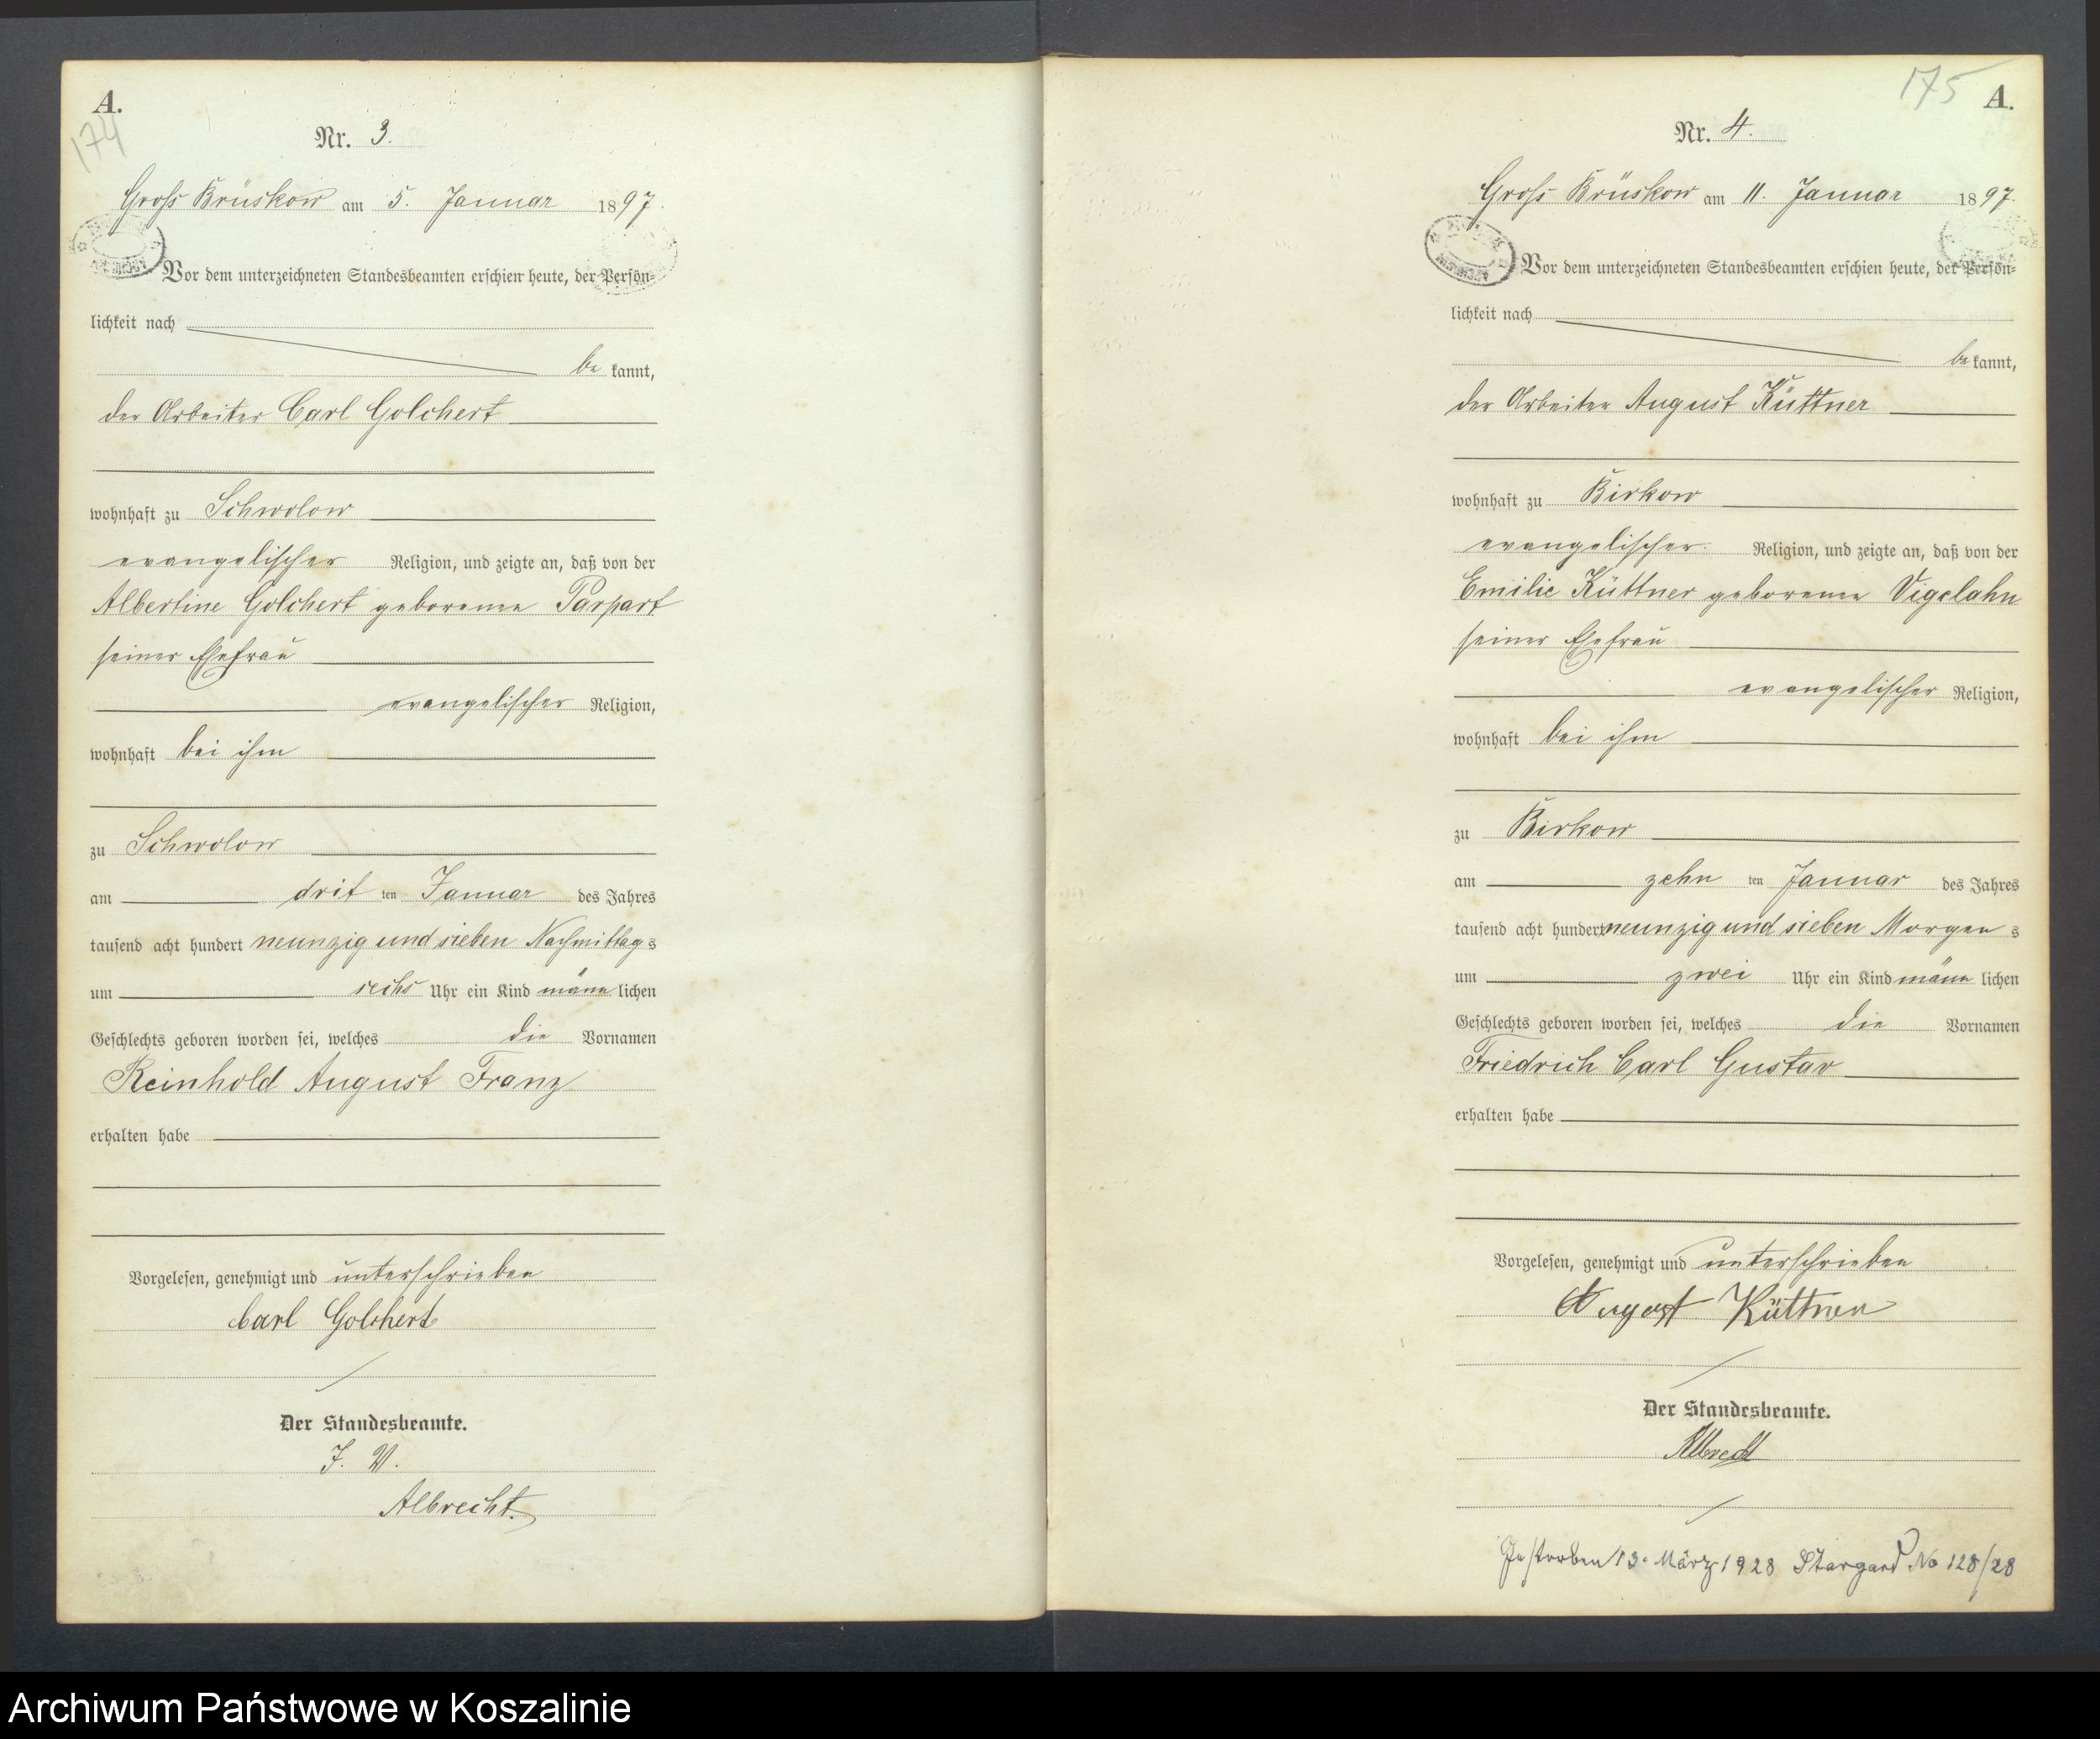 A.
174
Nr. 3.
Groß Brüskow am 5. Januar 1897.
Vor dem unterzeichneten Standesbeamten erschien heute, der Persön-
lichkeit nach
be kannt,
der Arbeiter Carl Golchert
wohnhaft zu Schwolow
evangelischer Religion, und zeigte an, daß von der
Albertine Golchert geborene Parpart
seiner Ehefrau
evangelischer Religion,
wohnhaft bei ihm
zu Schwolow
am drit ten Januar des Jahres
tausend acht hundert neunzig und sieben Nachmittag s
um sechs Uhr ein Kind männ lichen
Geschlechts geboren worden sei, welches die Vornamen
Reinhold August Franz
erhalten habe
Vorgelesen, genehmigt und unterschrieben
Carl Golchert
Der Standesbeamte.
J. V.
Albrecht.
175 A.
Nr. 4.
Groß Brüskow am 11. Januar 1897.
Vor dem unterzeichneten Standesbeamten erschien heute, der Persön-
lichkeit nach
be kannt,
der Arbeiter August Küttner
wohnhaft zu Birkow
evangelischer Religion, und zeigte an, daß von der
Emilie Küttner geborenen Vigelahn
seiner Ehefrau
evangelischer Religion,
wohnhaft bei ihm
zu Birkow
am zehn ten Januar des Jahres
tausend acht hundert neunzig und sieben Morgen s
um zwei Uhr ein Kind männ lichen
Geschlechts geboren worden sei, welches die Vornamen
Friedrich Carl Gustav
erhalten habe
Vorgelesen, genehmigt und unterschrieben
August Küttner
Der Standesbeamte.
Albrecht
Gestorben 13. März 1928 Stargard No 128/28
Archiwum Państwowe w Koszalinie